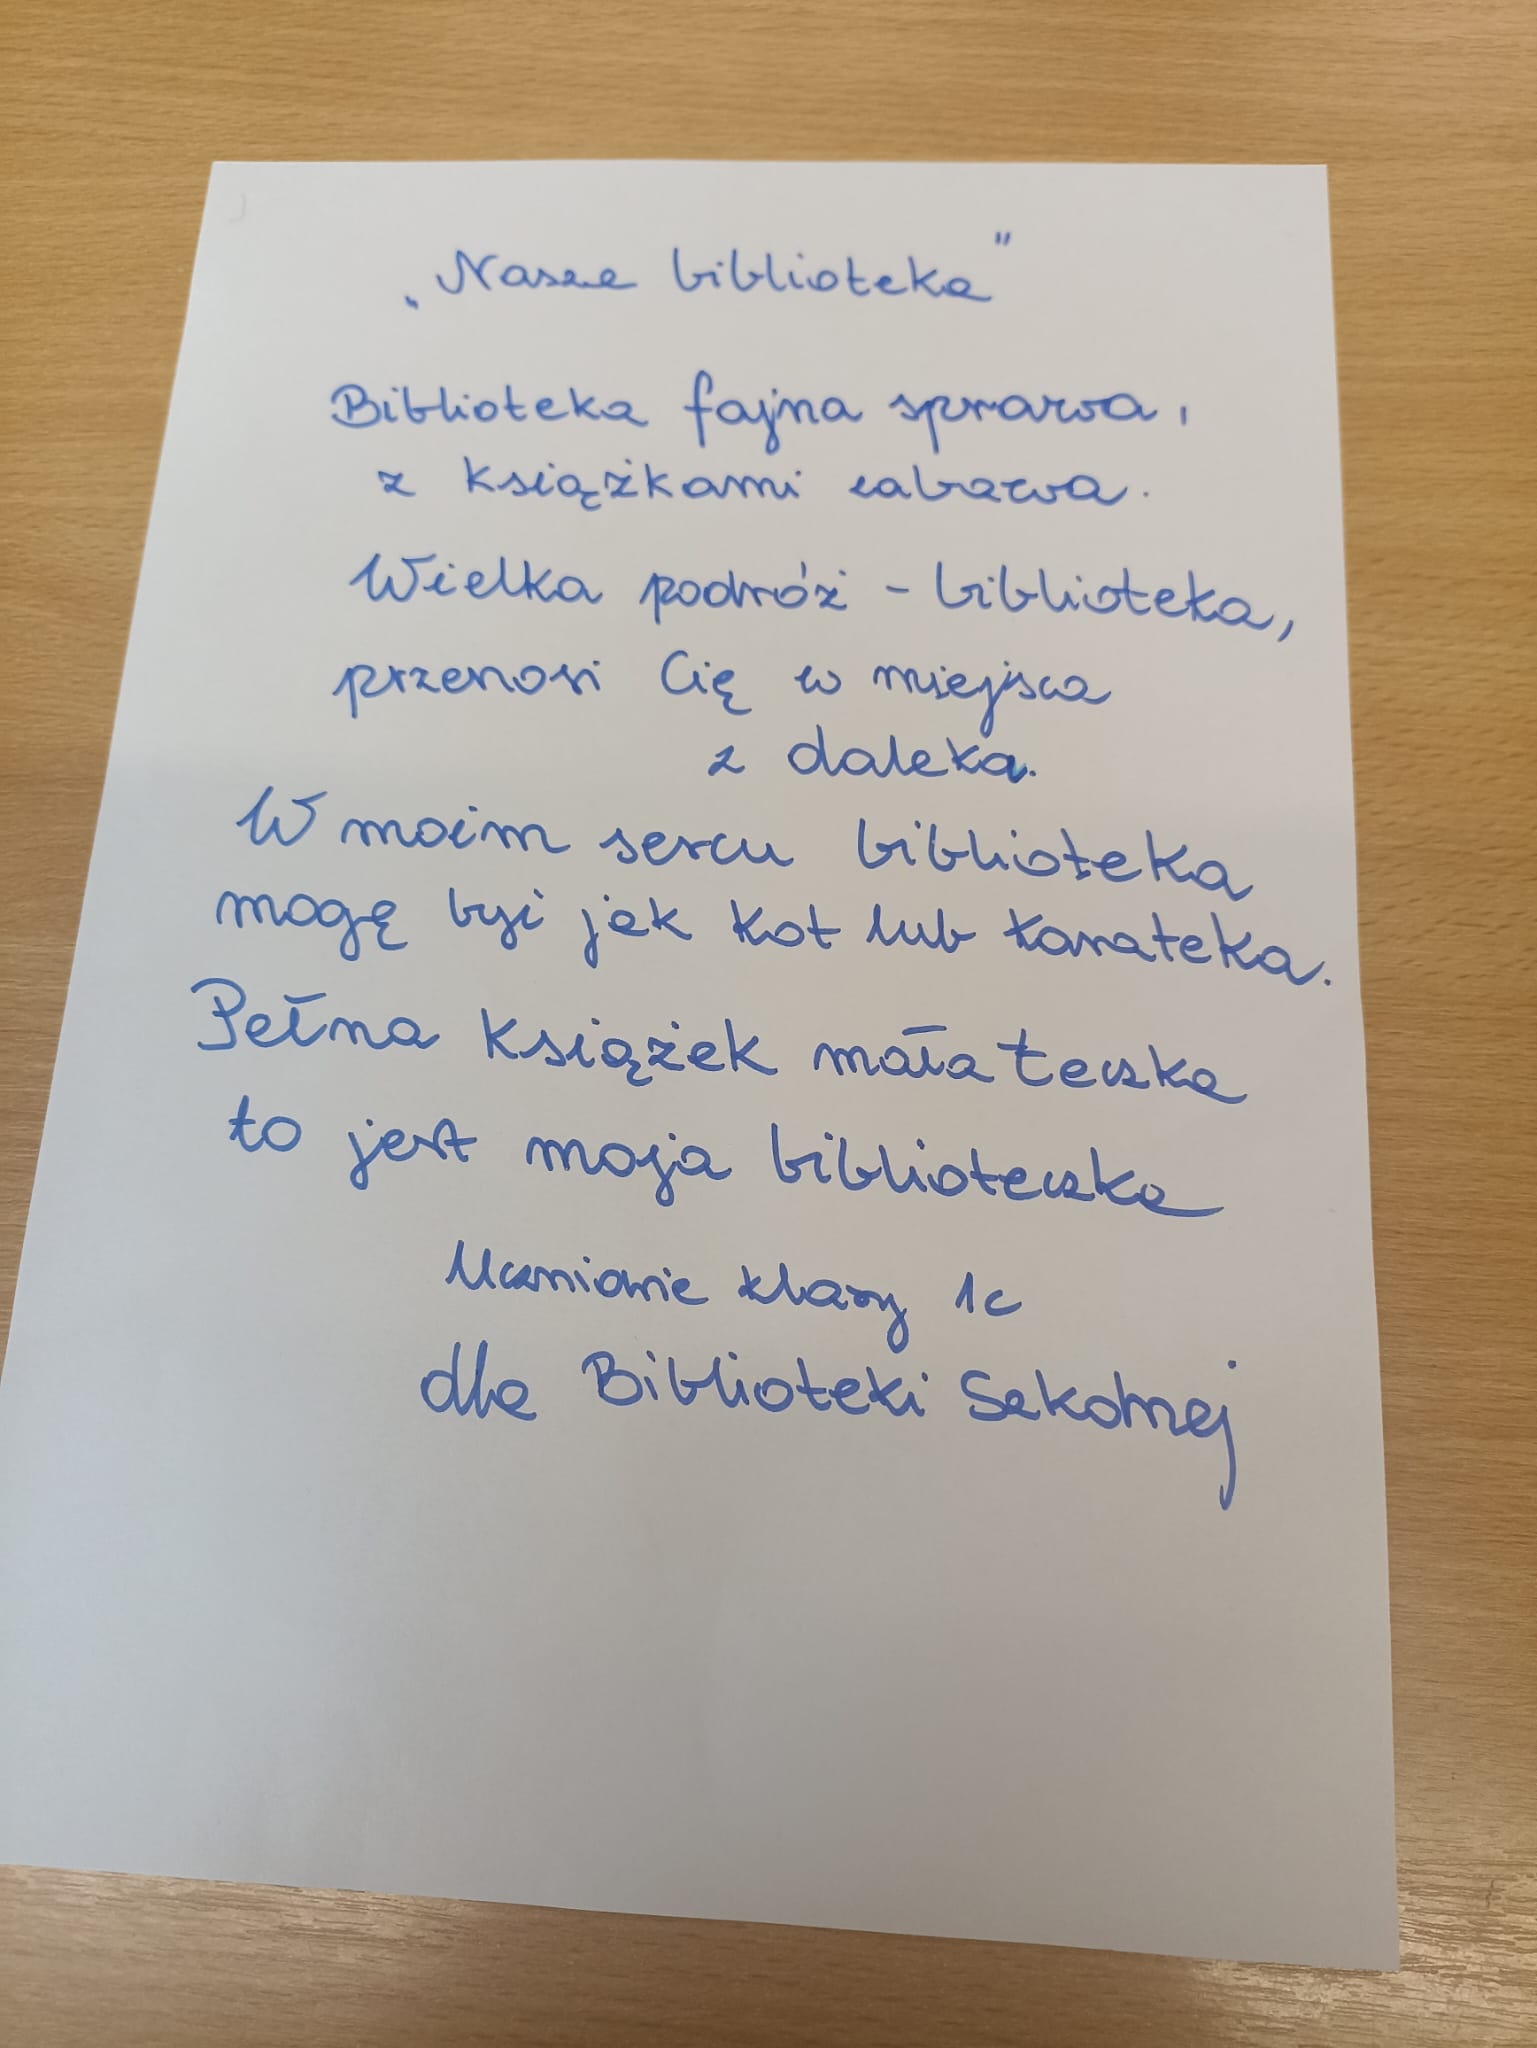 „Nasza biblioteka"
Biblioteka fajna sprawa,
z książkami zabawa.
Wielka podróż - biblioteka,
przenosi Cię w miejsca
z daleka.
W moim sercu biblioteka
mogę być jak kot lub karateka.
Pełna książek mała teczka
to jest moja biblioteczka
Uczniowie klasy 1c
dla Biblioteki Szkolnej